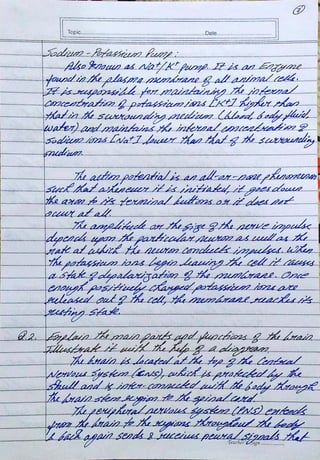 3
Topic Date
Sodium - Potassium Pump :
Also known as Na+/K+ pump. It is an Enzyme
found in the plasma membrane of all animal cells.
It is responsible for maintaining the internal
concentration of potassium ions [K+] higher than
that in the surrounding medium (blood, body fluid,
water) and maintains the internal concentration of
sodium ions [Na+] lower than that of the surrounding
medium.
The action potential is an all-or-none phenomenon
such that whenever it is initiated it goes down
the axon to its terminal buttons or it does not
occur at all.
The amplitude or the size of the nerve impulse
depends upon the particular neuron as well as the
rate at which the neuron conducts impulses. When
the potassium ions begin leaving the cell it causes
a state of depolarization of the membrane. Once
enough positively charged potassium ions are
released out of the cell, the membrane reaches its
resting state.
Q 2. Explain the main parts and functions of the brain.
Illustrate it with the help of a diagram.
The brain is located at the top of the Central
Nervous System (CNS), which is protected by the
skull and is inter-connected with the body through
the brain stem region to the spinal cord.
The peripheral nervous system (PNS) extends
from the brain to the regions throughout the body
& back again sends & receives neural signals that
Teacher Sign